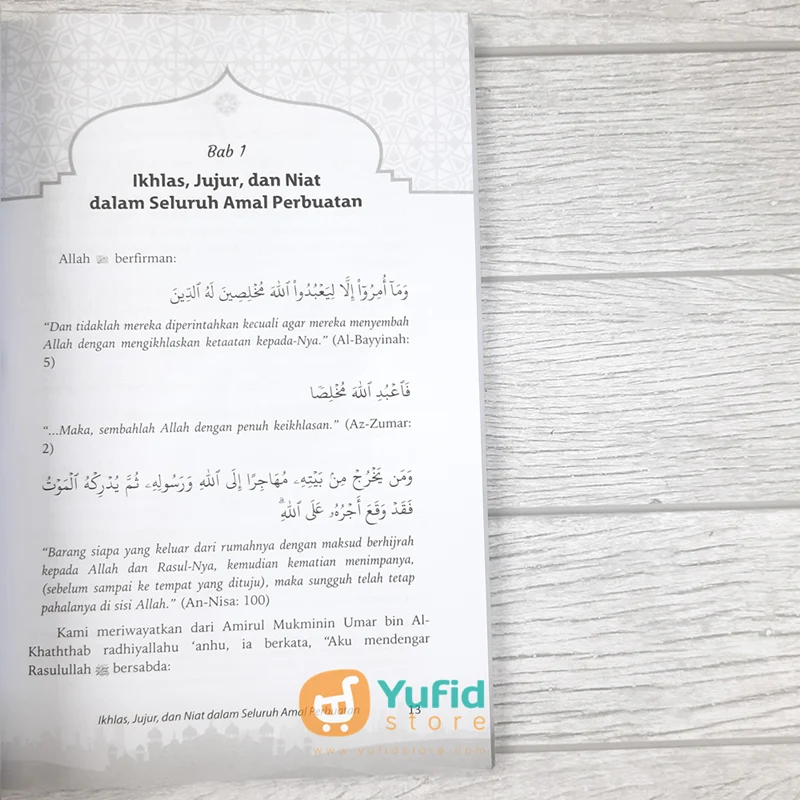 Bab 1
Ikhlas, Jujur, dan Niat
dalam Seluruh Amal Perbuatan
Allah ﷻ berfirman:
وَمَآ أُمِرُوٓاْ إِلَّا لِيَعْبُدُواْ ٱللَّهَ مُخْلِصِينَ لَهُ ٱلدِّينَ
“Dan tidaklah mereka diperintahkan kecuali agar mereka menyembah
Allah dengan mengikhlaskan ketaatan kepada-Nya.” (Al-Bayyinah:
5)
فَٱعْبُدِ ٱللَّهَ مُخْلِصًا
“...Maka, sembahlah Allah dengan penuh keikhlasan.” (Az-Zumar:
2)
وَمَن يَخْرُجْ مِنۢ بَيْتِهِۦ مُهَاجِرًا إِلَى ٱللَّهِ وَرَسُولِهِۦ ثُمَّ يُدْرِكْهُ ٱلْمَوْتُ
فَقَدْ وَقَعَ أَجْرُهُۥ عَلَى ٱللَّهِۗ
“Barang siapa yang keluar dari rumahnya dengan maksud berhijrah
kepada Allah dan Rasul-Nya, kemudian kematian menimpanya,
(sebelum sampai ke tempat yang dituju), maka sungguh telah tetap
pahalanya di sisi Allah.” (An-Nisa: 100)
Kami meriwayatkan dari Amirul Mukminin Umar bin Al-
Khaththab radhiyallahu ‘anhu, ia berkata, “Aku mendengar
Rasulullah ﷺ bersabda:
Ikhlas, Jujur, dan Niat dalam Seluruh Amal Perbuatan 13
Yufid
store
www.yufidstore.com